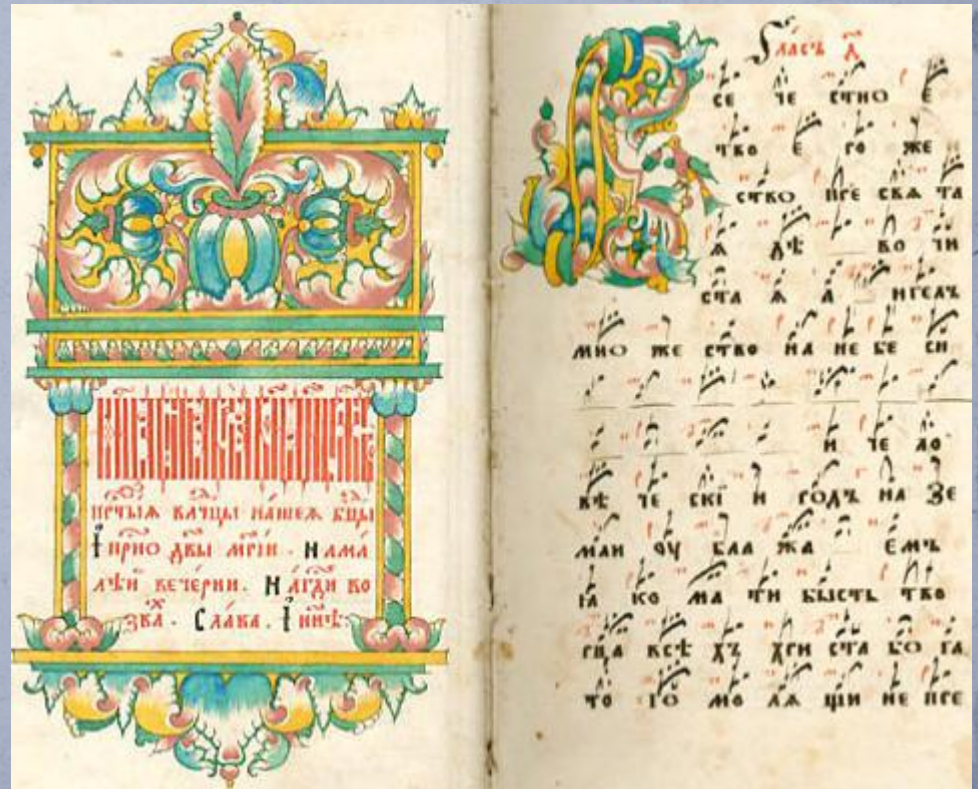 прⷱ҇тыѧ влⷣчцы нашеѧ бцⷣы
І прⷭ҇но дв҃ы мр҃іи. Нама
лѣи вечерни. Нагдⷭ҇и во
зва̑х. Слава. І нн҃ѣ:
Гласъ д҃
В се че стно е
тво е ро же
ство пре свѧ та
ѧ дѣ во чи
ста ѧ а нгелъ
мно же ство на не бе си
и че ло
вѣ че скі и родъ на зе
мли оу бла жа емъ
ꙗ ко ма ти бысть тво
рца всѣ хъ хри ста бо га
то го мо лѧ щи не пре